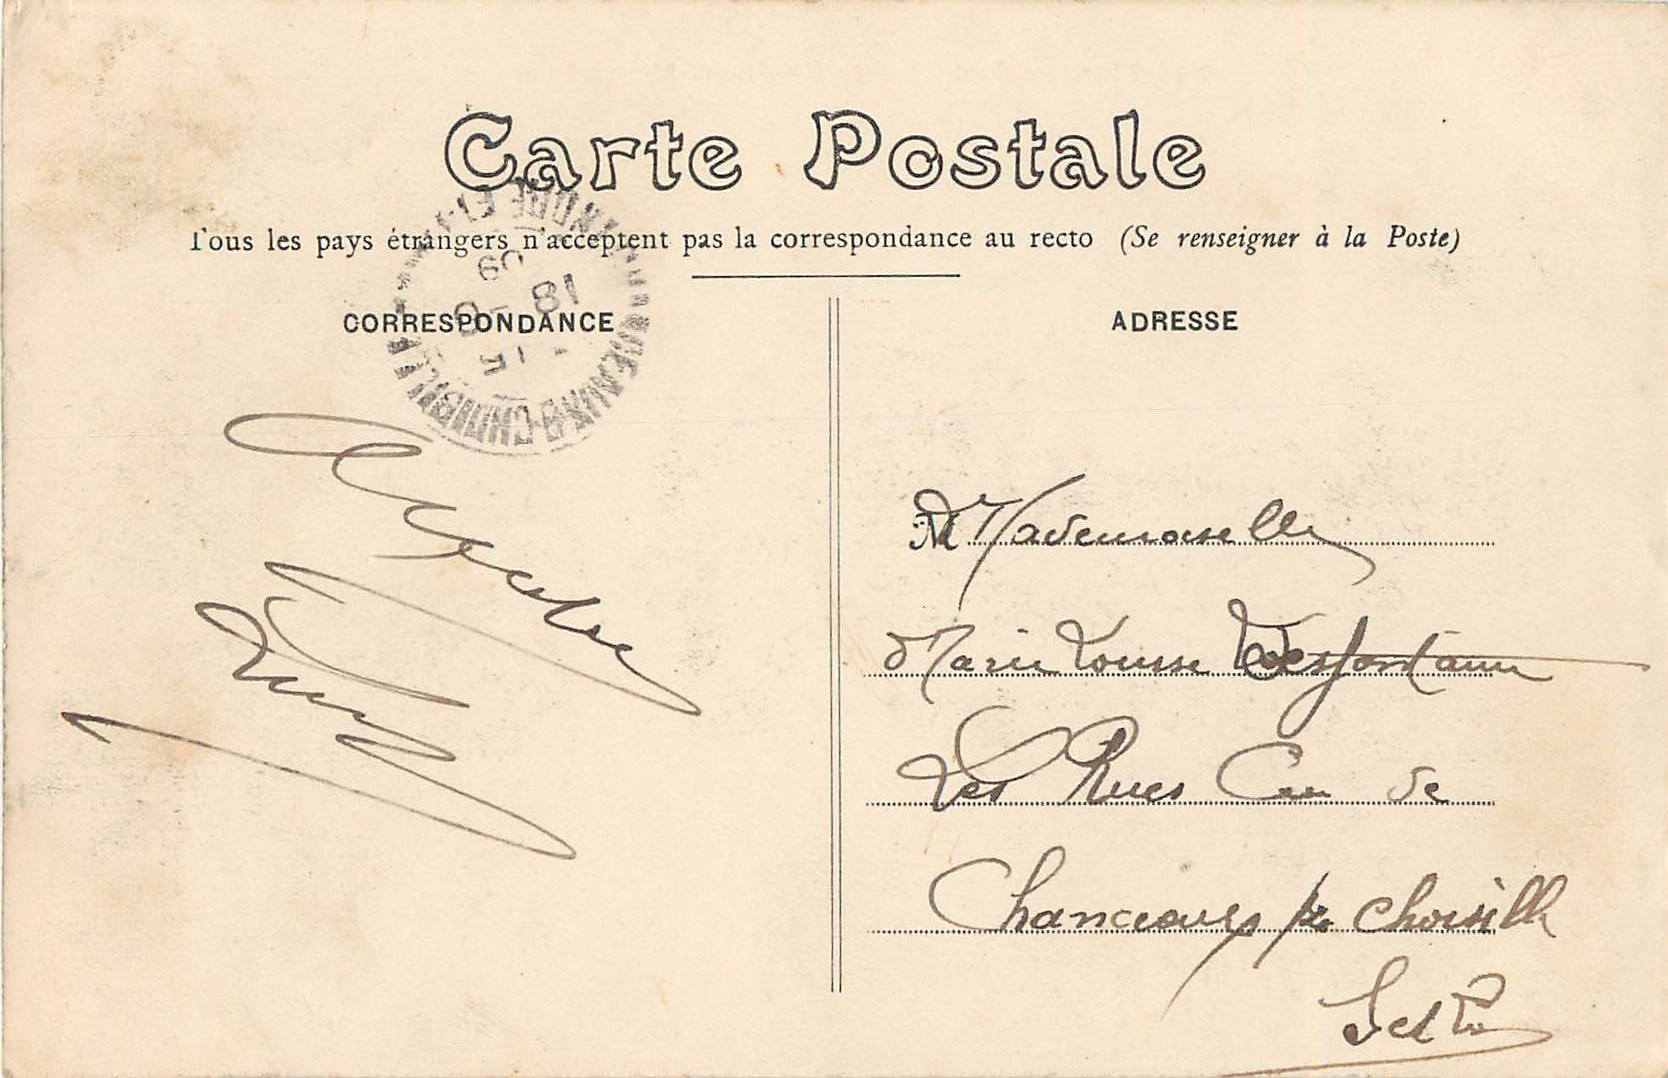 Carte Postale
Tous les pays étrangers n'acceptent pas la correspondance au recto (Se renseigner à la Poste)
CORRESPONDANCE
ADRESSE
INDRE-ET-
18
5
09
M Mademoiselle
Marie Louise Desfontaine
Les Rues Cne de
Chanceaux p. Choisille
I et L